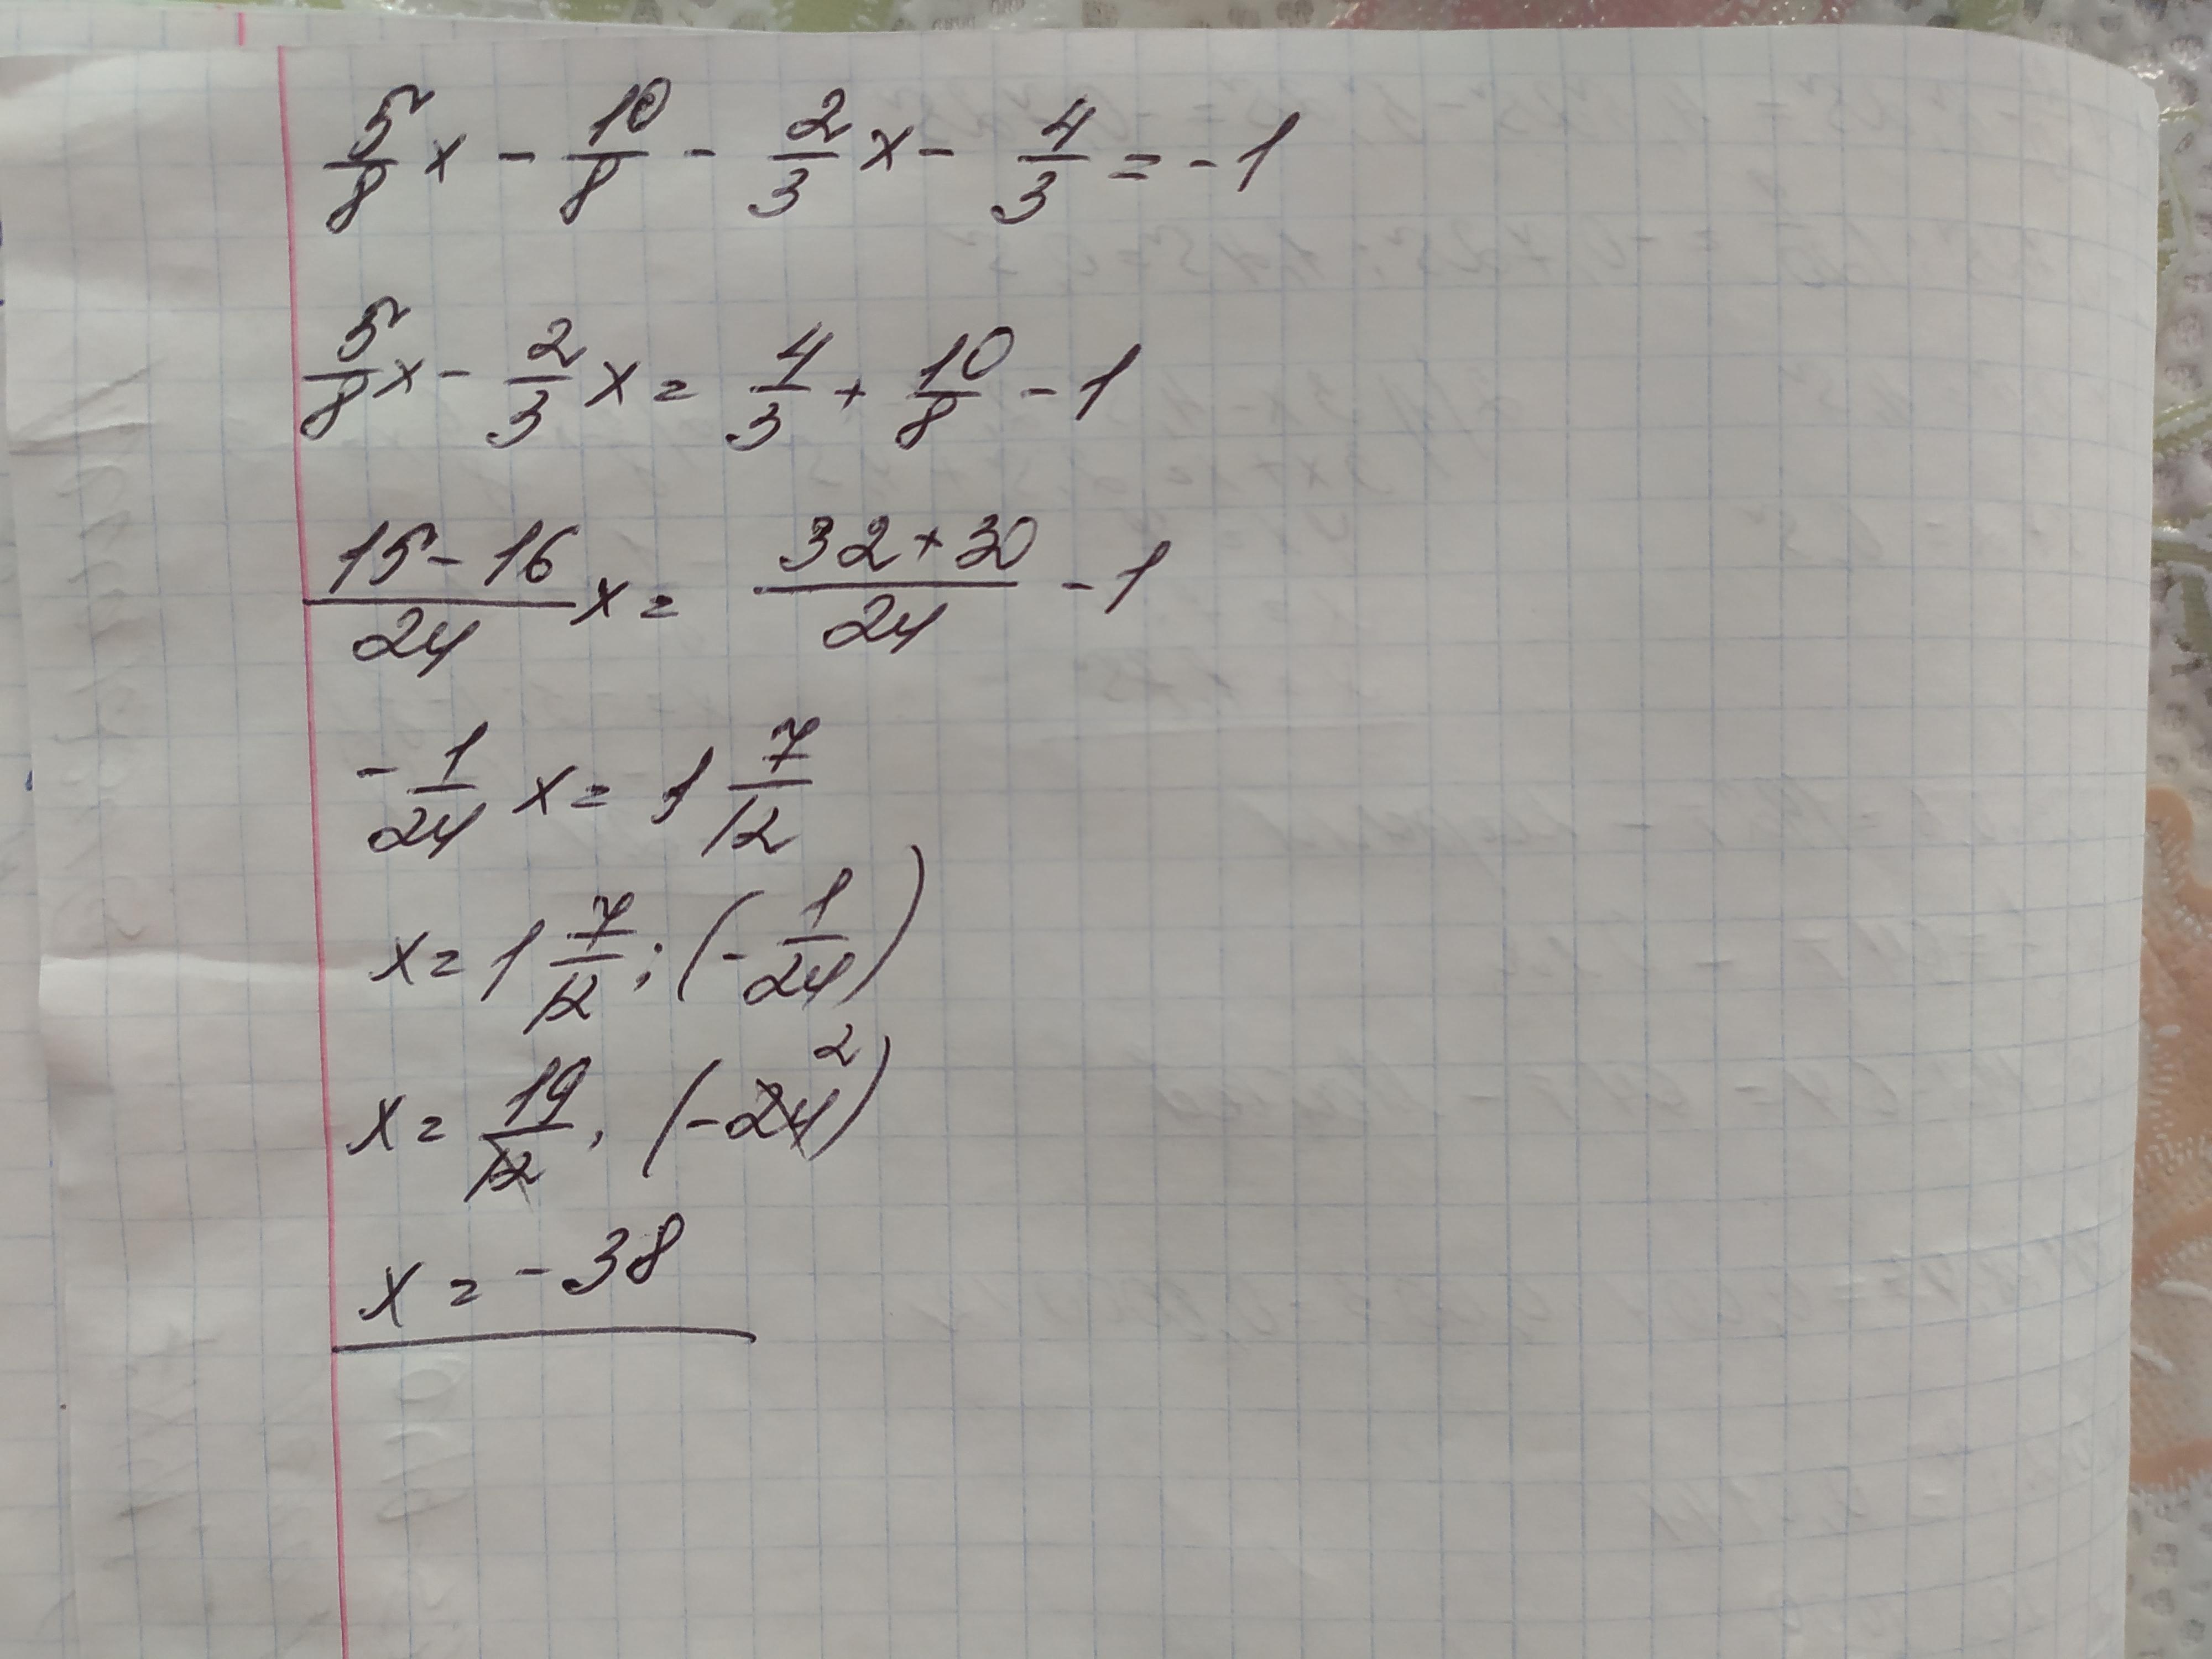 5/8 x - 10/8 - 2/3 x - 4/3 = -1
5/8 x - 2/3 x = 4/3 + 10/8 - 1
(15-16)/24 x = (32+30)/24 - 1
-1/24 x = 1 7/12
x = 1 7/12 : (-1/24)
x = 19/12 · (-24) 2
x = -38